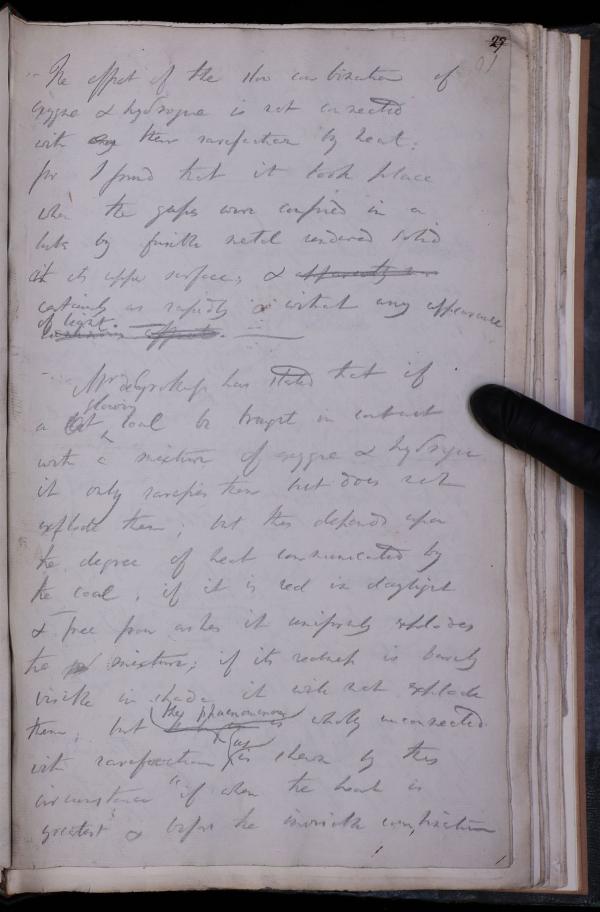 29
The effect of the slow combination of
oxygene & hydrogene is not connected
with any their rarefaction by heat;
for I found that it took place
when the gases were confined in a
tube by fusible metal rendered solid
at its upper surface; & apparently
certainly as rapidly & without any appearance
of light.
Mr de Grotthuss has stated that if
glowing
a hot coal be brought in contact
with a mixture of oxygene & hydrogene
it only rarefies them but does not
explode them; but this depends upon
the degree of heat communicated by
the coal, if it is red in daylight
& free from ashes it uniformly explodes
the mixture; if its redness is barely
visible in shade it will not explode
them; but the phaenomenon is wholly unconnected
with rarefaction as is shewn by this
circumstance "if when the heat is
greatest & before the invisible combination